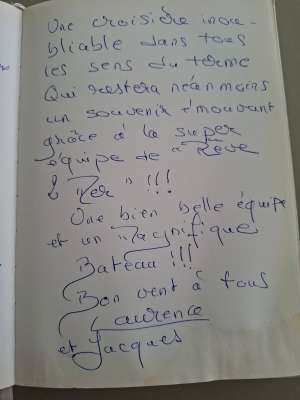 Une croisière inou-
bliable dans tous
les sens du terme
Qui restera néanmoins
un souvenir émouvant
grâce à la super
équipe de "Rêve
& Mer" !!!
Une bien belle équipe
et un Magnifique
Bateau !!!
Bon vent à tous
Laurence
et Jacques